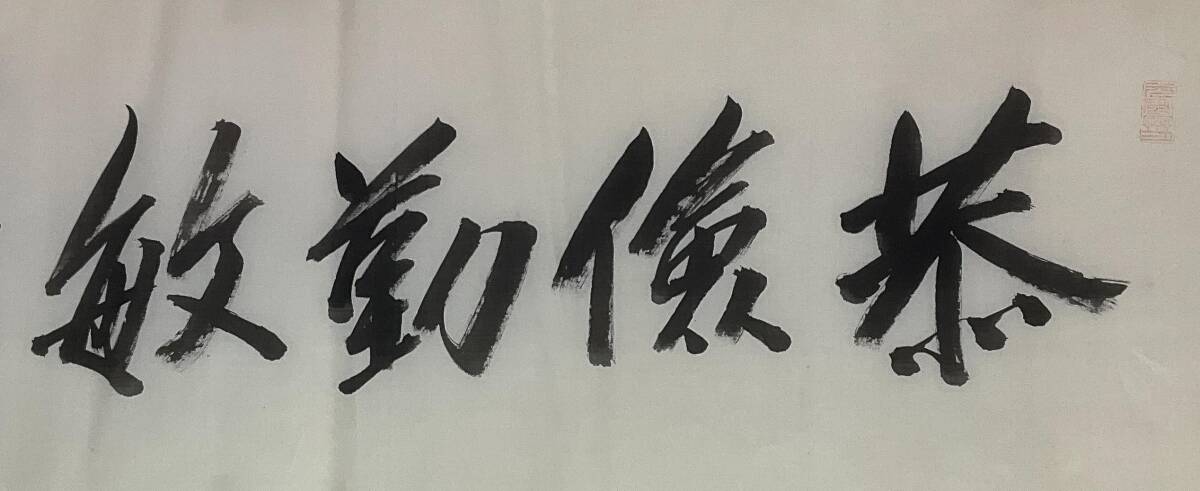 恭儉勤敏